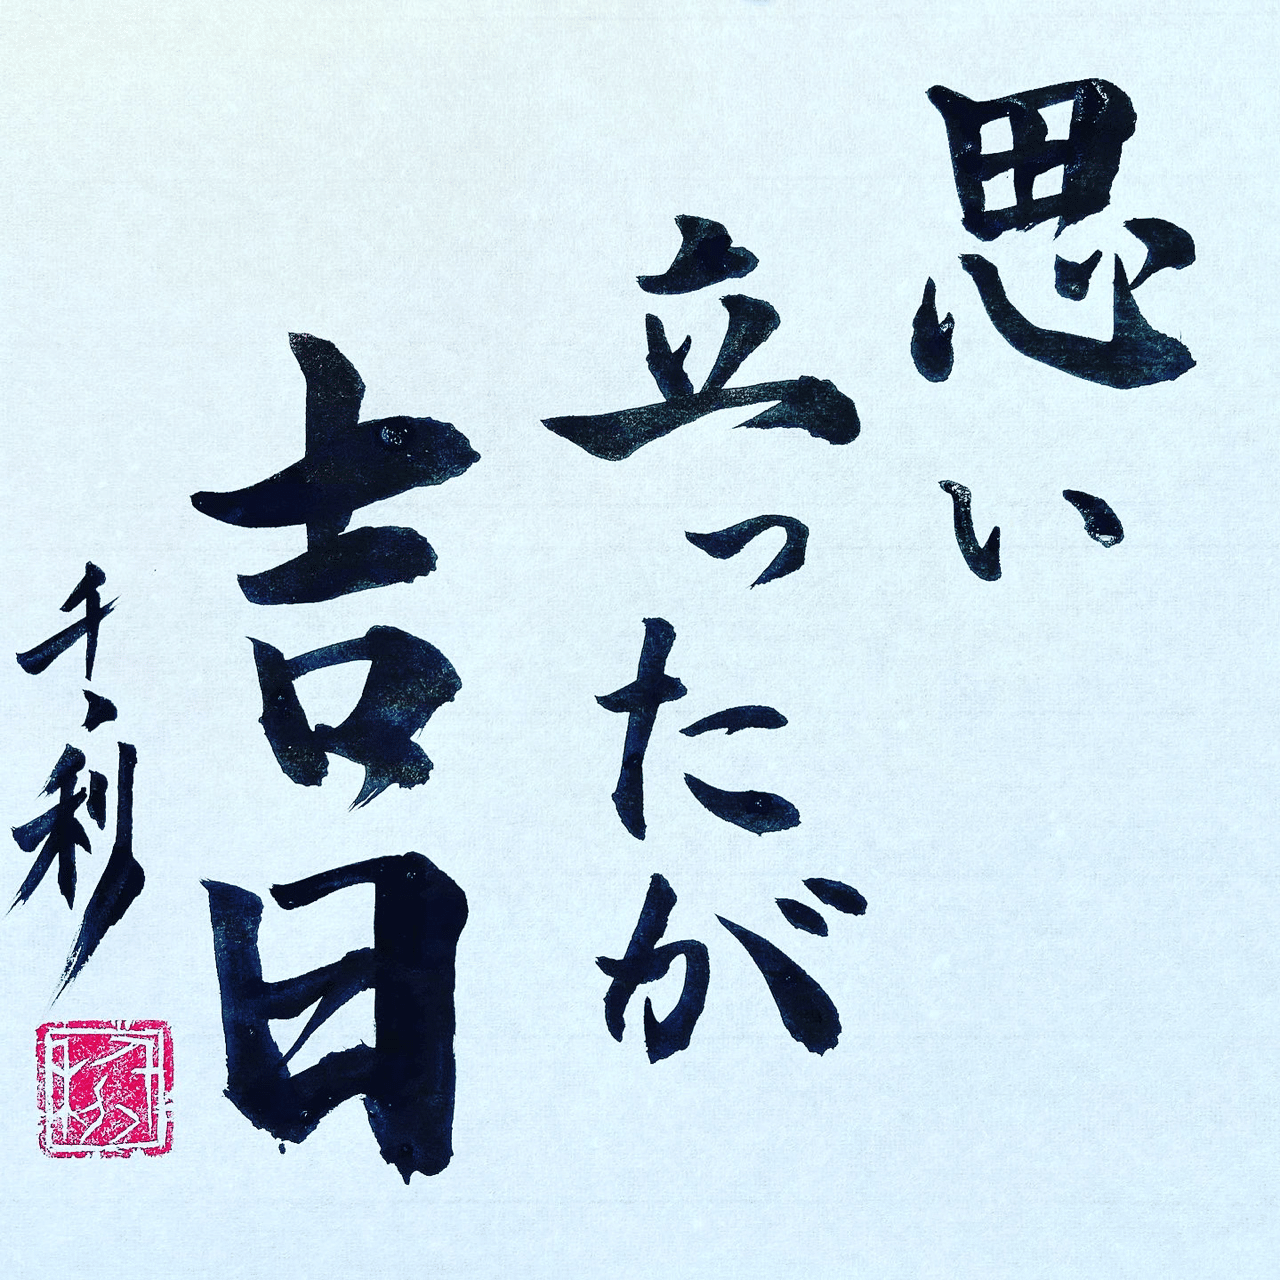 思い
立ったが
吉日
千、利